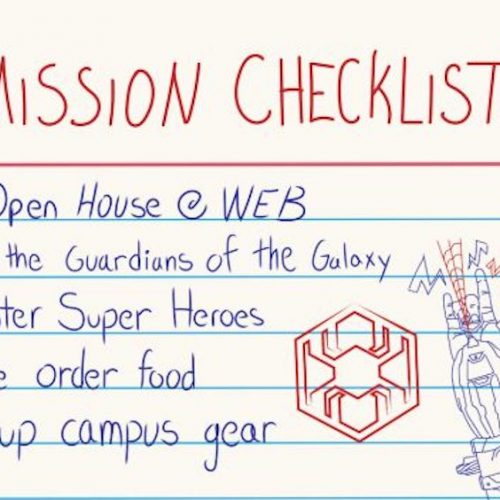 MISSION CHECKLIST
Open House @ WEB
the Guardians of the Galaxy
Super Heroes
order food
up campus gear